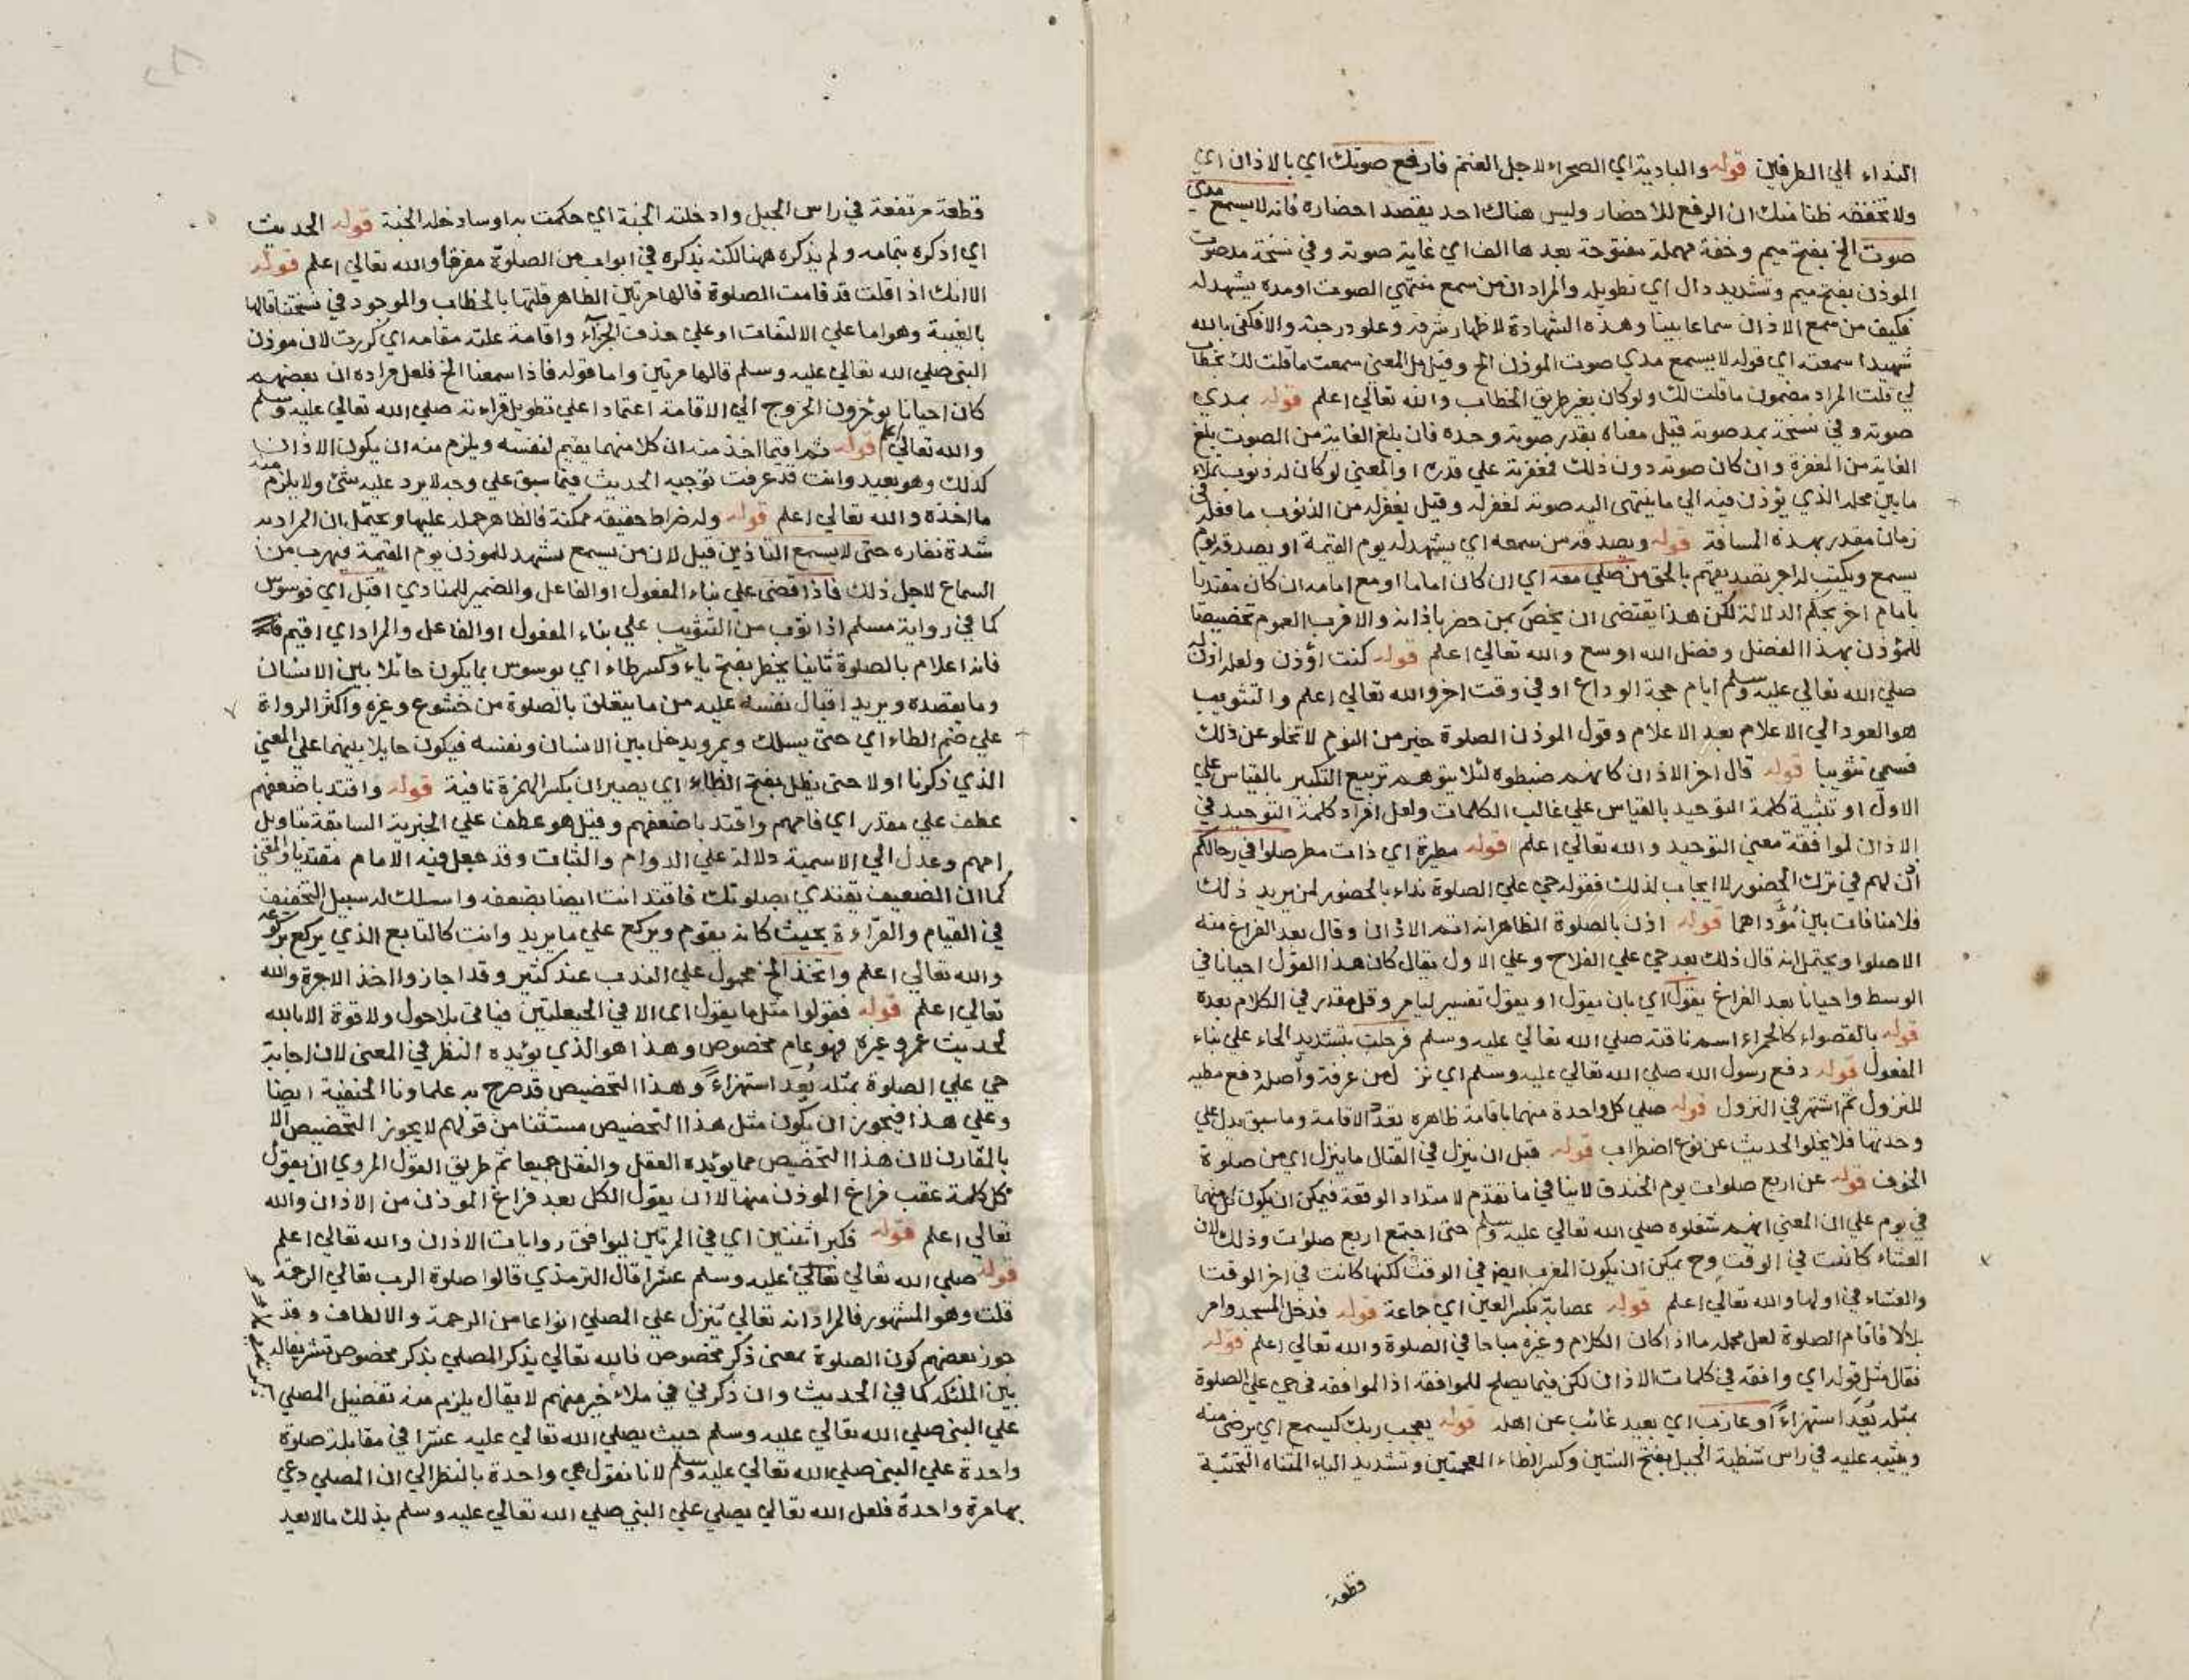 النداء الي الطرفين قوله والبادية اي الصحراء لاجل الغنم فارفع صوتك اي بالاذان اي
ولا تخفضه ظنا منك ان الرفع للاحضار وليس هناك احد يقصد احضاره فانه لا يسمع مدي
صوت الخ بفتح ميم وخفة مهملة مفتوحة بعدها الف اي غاية صوته وفي نسخة مد صوت
الموذن بفتح ميم وتشديد دال اي تطويله والمراد ان من سمع منتهي الصوت او مده يشهد له
فكيف من سمع الاذان سماعا بينا وهذه الشهادة لاظهار شرفه وعلو درجته والا فكفي بالله
شهيدا سمعته اي قوله لا يسمع مدي صوت الموذن الخ وقيل بل المعني سمعت ما قلت لك بخطاب
لي قلت المراد مضمون ما قلت لك ولو كان بغير طريق الخطاب والله تعالي اعلم قوله بمدي
صوته وفي نسخة بمد صوته قيل معناه بقدر صوته وحده فان بلغ الغاية من الصوت بلغ
الغاية من المغفرة وان كان صوته دون ذلك فمغفرته علي قدره او المعني لو كان له ذنوب تملاء
ما بين محله الذي يؤذن فيه الي ما ينتهي اليه صوته لغفر له وقيل يغفر له من الذنوب ما فعله في
زمان مقدر بهذه المسافة قوله ويصدقه من سمعه اي يشهد له يوم القيمة او يصدقه يوم
يسمع ويكتب له اجر تصديقهم بالحق من صلي معه اي ان كان اماما او مع امامه ان كان مقتديا
بامام اخر بحكم الدلالة لكن هذا يقتضي ان يخص بمن حضر باذانه والاقرب العموم تخصيصا
للمؤذن بهذا الفضل وفضل الله اوسع والله تعالي اعلم قوله كنت اؤذن ولعله اذن
صلي الله تعالي عليه وسلم ايام حجة الوداع او في وقت اخر والله تعالي اعلم والتثويب
هو العود الي الاعلام بعد الاعلام وقول الموذن الصلوة خير من النوم لا تخلو عن ذلك
فسمي تثويبا قوله قال اخر الاذان كانهم ضبطوه لئلا يتوهم تربيع التكبير بالقياس علي
الاول او تثنية كلمة التوحيد بالقياس علي غالب الكلمات ولعل افراد كلمة التوحيد في
الاذان لموافقة معني التوحيد والله تعالي اعلم قوله مطيرة اي ذات مطر صلوا في رحالكم
اذن لهم في ترك الحضور لا ايجاب لذلك فقوله حي علي الصلوة نداء بالحضور لمن يريد ذلك
فلا منافات بين مؤداهما قوله اذن بالصلوة الظاهر انه اتم الاذان وقال بعد الفراغ منه
الا صلوا ويحتمل انه قال ذلك بعد حي علي الفلاح وعلي الاول يقال كان هذا القول احيانا في
الوسط واحيانا بعد الفراغ يقول اي بان يقول او يقول تفسير ليامر وقل مقدر في الكلام بعده
قوله بالقصواء كالحمراء اسم ناقته صلي الله تعالي عليه وسلم فرحلت بتشديد الحاء علي بناء
المفعول قوله دفع رسول الله صلي الله تعالي عليه وسلم اي نزل من عرفة واصله دفع مطيه
للنزول ثم اشتهر في النزول قوله صلي كل واحدة منهما باقامة ظاهره تعدد الاقامة وما سبق يدل علي
وحدتها فلا يخلو الحديث عن نوع اضطراب قوله قبل ان ينزل في القتال ما ينزل اي من صلوة
الخوف قوله عن اربع صلوات يوم الخندق لا ينافي ما تقدم لامتداد الوقعة فيمكن ان يكون كل منهما
في يوم علي ان المعني انهم شغلوه صلي الله تعالي عليه وسلم حتي اجتمع اربع صلوات وذلك لان
العشاء كانت في الوقت وح يمكن ان يكون المغرب ايضا في الوقت لكنها كانت في اخر الوقت
والعشاء في اولها والله تعالي اعلم قوله عصابة بكسر العين اي جماعة قوله فدخل المسجد وامر
بلالا فاقام الصلوة لعل محله ما اذا كان الكلام وغيره مباحا في الصلوة والله تعالي اعلم قوله
فقال مثل قوله اي وافقه في كلمات الاذان لكن فيما يصلح للموافقة اذ الموافقة في حي علي الصلوة
بمثله يُعَد استهزاءً او عازب اي بعيد غائب عن اهله قوله يعجب ربك كيسمع اي يرضي منه
ويثيبه عليه في راس شظية الجبل بفتح الشين وكسر الظاء المعجمتين وتشديد الياء المثناه التحتية
قطعة
قطعة مرتفعة في راس الجبل وادخلته الجنة اي حكمت به او سادخله الجنة قوله الحديث
اي اذكره بتمامه ولم يذكره ههنا لكن يذكره في ابواب من الصلوة مفرقا والله تعالي اعلم قوله
الا انك اذا قلت قد قامت الصلوة قالها مرتين الظاهر قلتها بالخطاب والموجود في نسختنا قالها
بالغيبة وهو اما علي الالتفات او علي حذف الجزآء واقامة علته مقامه اي كررت لان موذن
النبي صلي الله تعالي عليه وسلم قالها مرتين واما قوله فاذا سمعنا الخ فلعل مراده ان بعضهم
كان احيانا يؤخرون الخروج الي الاقامة اعتمادا علي تطويل قراءته صلي الله تعالي عليه وسلم
والله تعالي اعلم قوله ثم اقيما اخذ منه ان كلا منهما يقيم لنفسه ويلزم منه ان يكون الاذان
كذلك وهو بعيد وانت قد عرفت توجيه الحديث فيما سبق علي وجه لا يرد عليه شئ ولا يلزم منه
ما اخذه والله تعالي اعلم قوله وله ضراط حقيقته ممكنة فالظاهر حمله عليها ويحتمل ان المراد به
شدة نفاره حتي لا يسمع التاذين قيل لان من يسمع يشهد للموذن يوم القيمة فيهرب من
السماع لاجل ذلك فاذا قضي علي بناء المفعول او الفاعل والضمير للمنادي اقبل اي فوسوس
كما في رواية مسلم اذا ثوب من التثويب علي بناء المفعول او الفاعل والمراد اي اقيم
فانه اعلام بالصلوة ثانيا يخطر بفتح ياء وكسر طاء اي يوسوس بما يكون حائلا بين الانسان
وما يقصده ويريد اقبال نفسه عليه من ما يتعلق بالصلوة من خشوع وغيره واكثر الرواة
علي ضم الطاء اي حتي يسلك ويمر ويدخل بين الانسان ونفسه فيكون حايلا بينهما علي المعني
الذي ذكرنا اولا حتي يظل بفتح الظاء اي يصير ان بكسر الهمزة نافية قوله واقتد باضعفهم
عطف علي مقدر اي فامهم واقتد باضعفهم وقيل هو عطف علي الخبرية السابقة بتاويل
امهم وعدل الي الاسمية دلالة علي الدوام والثبات وقد جعل فيه الامام مقتديا والمعني
كما ان الضعيف يقتدي بصلوتك فاقتد انت ايضا بضعفه واسلك له سبيل التخفيف
في القيام والقرآءة بحيث كانه يقوم ويركع علي ما يريد وانت كالتابع الذي يركع بركوعه
والله تعالي اعلم واتخذ الخ محمول علي الندب عند كثير وقد اجازوا اخذ الاجرة والله
تعالي اعلم قوله فقولوا مثل ما يقول اي الا في الحيعلتين فياتي بلا حول ولا قوة الا بالله
لحديث عمر وغيره فهو عام مخصوص وهذا هو الذي يؤيده النظر في المعني لان اجابة
حي علي الصلوة بمثله يُعَد استهزاءً وهذا التخصيص قد صرح به علماونا الحنفية ايضا
وعلي هذا فيجوز ان يكون مثل هذا التخصيص مستثنا من قولهم لا يجوز التخصيص الا
بالمقارن لان هذا التخصيص مما يؤيده العقل والنقل جميعا ثم طريق القول المروي ان يقول
كل كلمة عقب فراغ الموذن منها لا ان يقول الكل بعد فراغ الموذن من الاذان والله
تعالي اعلم قوله فكبر اثنتين اي في المرتين ليوافق روايات الاذان والله تعالي اعلم
قوله صلي الله تعالي تعالي عليه وسلم عشرا قال الترمذي قالوا صلوة الرب تعالي الرحمة
قلت وهو المشهور فالمراد انه تعالي ينزل علي المصلي انواعا من الرحمة والالطاف وقد
جوز بعضهم كون الصلوة بمعني ذكر مخصوص فالله تعالي يذكر المصلي بذكر مخصوص تشريفا له
بين الملئكة كما في الحديث وان ذكرني في ملاء خير منهم لا يقال يلزم منه تفضيل المصلي
علي النبي صلي الله تعالي عليه وسلم حيث يصلي الله تعالي عليه عشرا في مقابلة صلوة
واحدة علي النبي صلي الله تعالي عليه وسلم لانا نقول هي واحدة بالنظر الي ان المصلي دعي
بها مرة واحدة فلعل الله تعالي يصلي علي النبي صلي الله تعالي عليه وسلم بذلك ما لا يعد